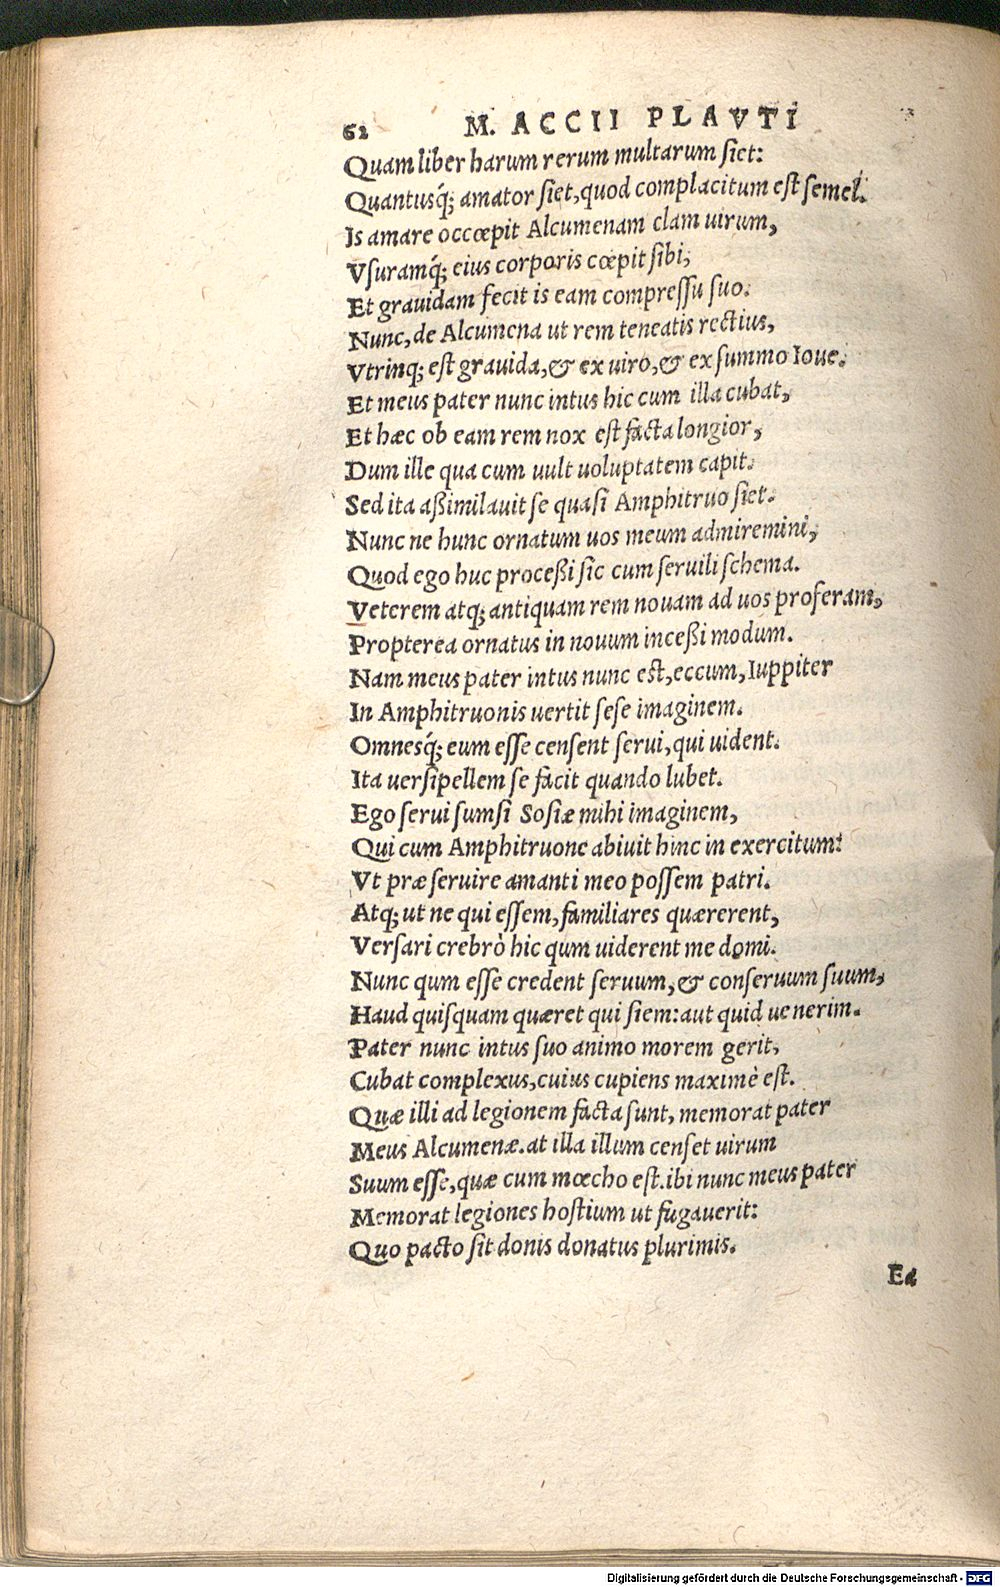 62 M. ACCII PLAVTI
Quam liber harum rerum multarum siet:
Quantusq́; amator siet, quod complacitum est semel.
Is amare occœpit Alcumenam clam uirum,
Vsuramq́; eius corporis cœpit sibi,
Et grauidam fecit is eam compressu suo.
Nunc, de Alcumena ut rem teneatis rectius,
Vtrinq; est grauida, & ex uiro, & ex summo Ioue.
Et meus pater nunc intus hic cum illa cubat,
Et hæc ob eam rem nox est facta longior,
Dum ille qua cum uult uoluptatem capit.
Sed ita aßimilauit se quasi Amphitruo siet.
Nunc ne hunc ornatum uos meum admiremini,
Quod ego huc proceßi sic cum seruili schema.
Veterem atq; antiquam rem nouam ad uos proferam,
Propterea ornatus in nouum inceßi modum.
Nam meus pater intus nunc est, eccum, Iuppiter
In Amphitruonis uertit sese imaginem.
Omnesq́; eum esse censent serui, qui uident.
Ita uersipellem se facit quando lubet.
Ego serui sumsi Sosiæ mihi imaginem,
Qui cum Amphitruone abiuit hinc in exercitum:
Vt præ seruire amanti meo possem patri.
Atq; ut ne qui essem, familiares quærerent,
Versari crebrò hic qum uiderent me domi.
Nunc qum esse credent seruum, & conseruum suum,
Haud quisquam quæret qui siem: aut quid uenerim.
Pater nunc intus suo animo morem gerit,
Cubat complexus, cuius cupiens maximè est.
Quæ illi ad legionem facta sunt, memorat pater
Meus Alcumenæ. at illa illum censet uirum
Suum esse, quæ cum mœcho est. ibi nunc meus pater
Memorat legiones hostium ut fugauerit:
Quo pacto sit donis donatus plurimis.
Ea
Digitalisierung gefördert durch die Deutsche Forschungsgemeinschaft - DFG